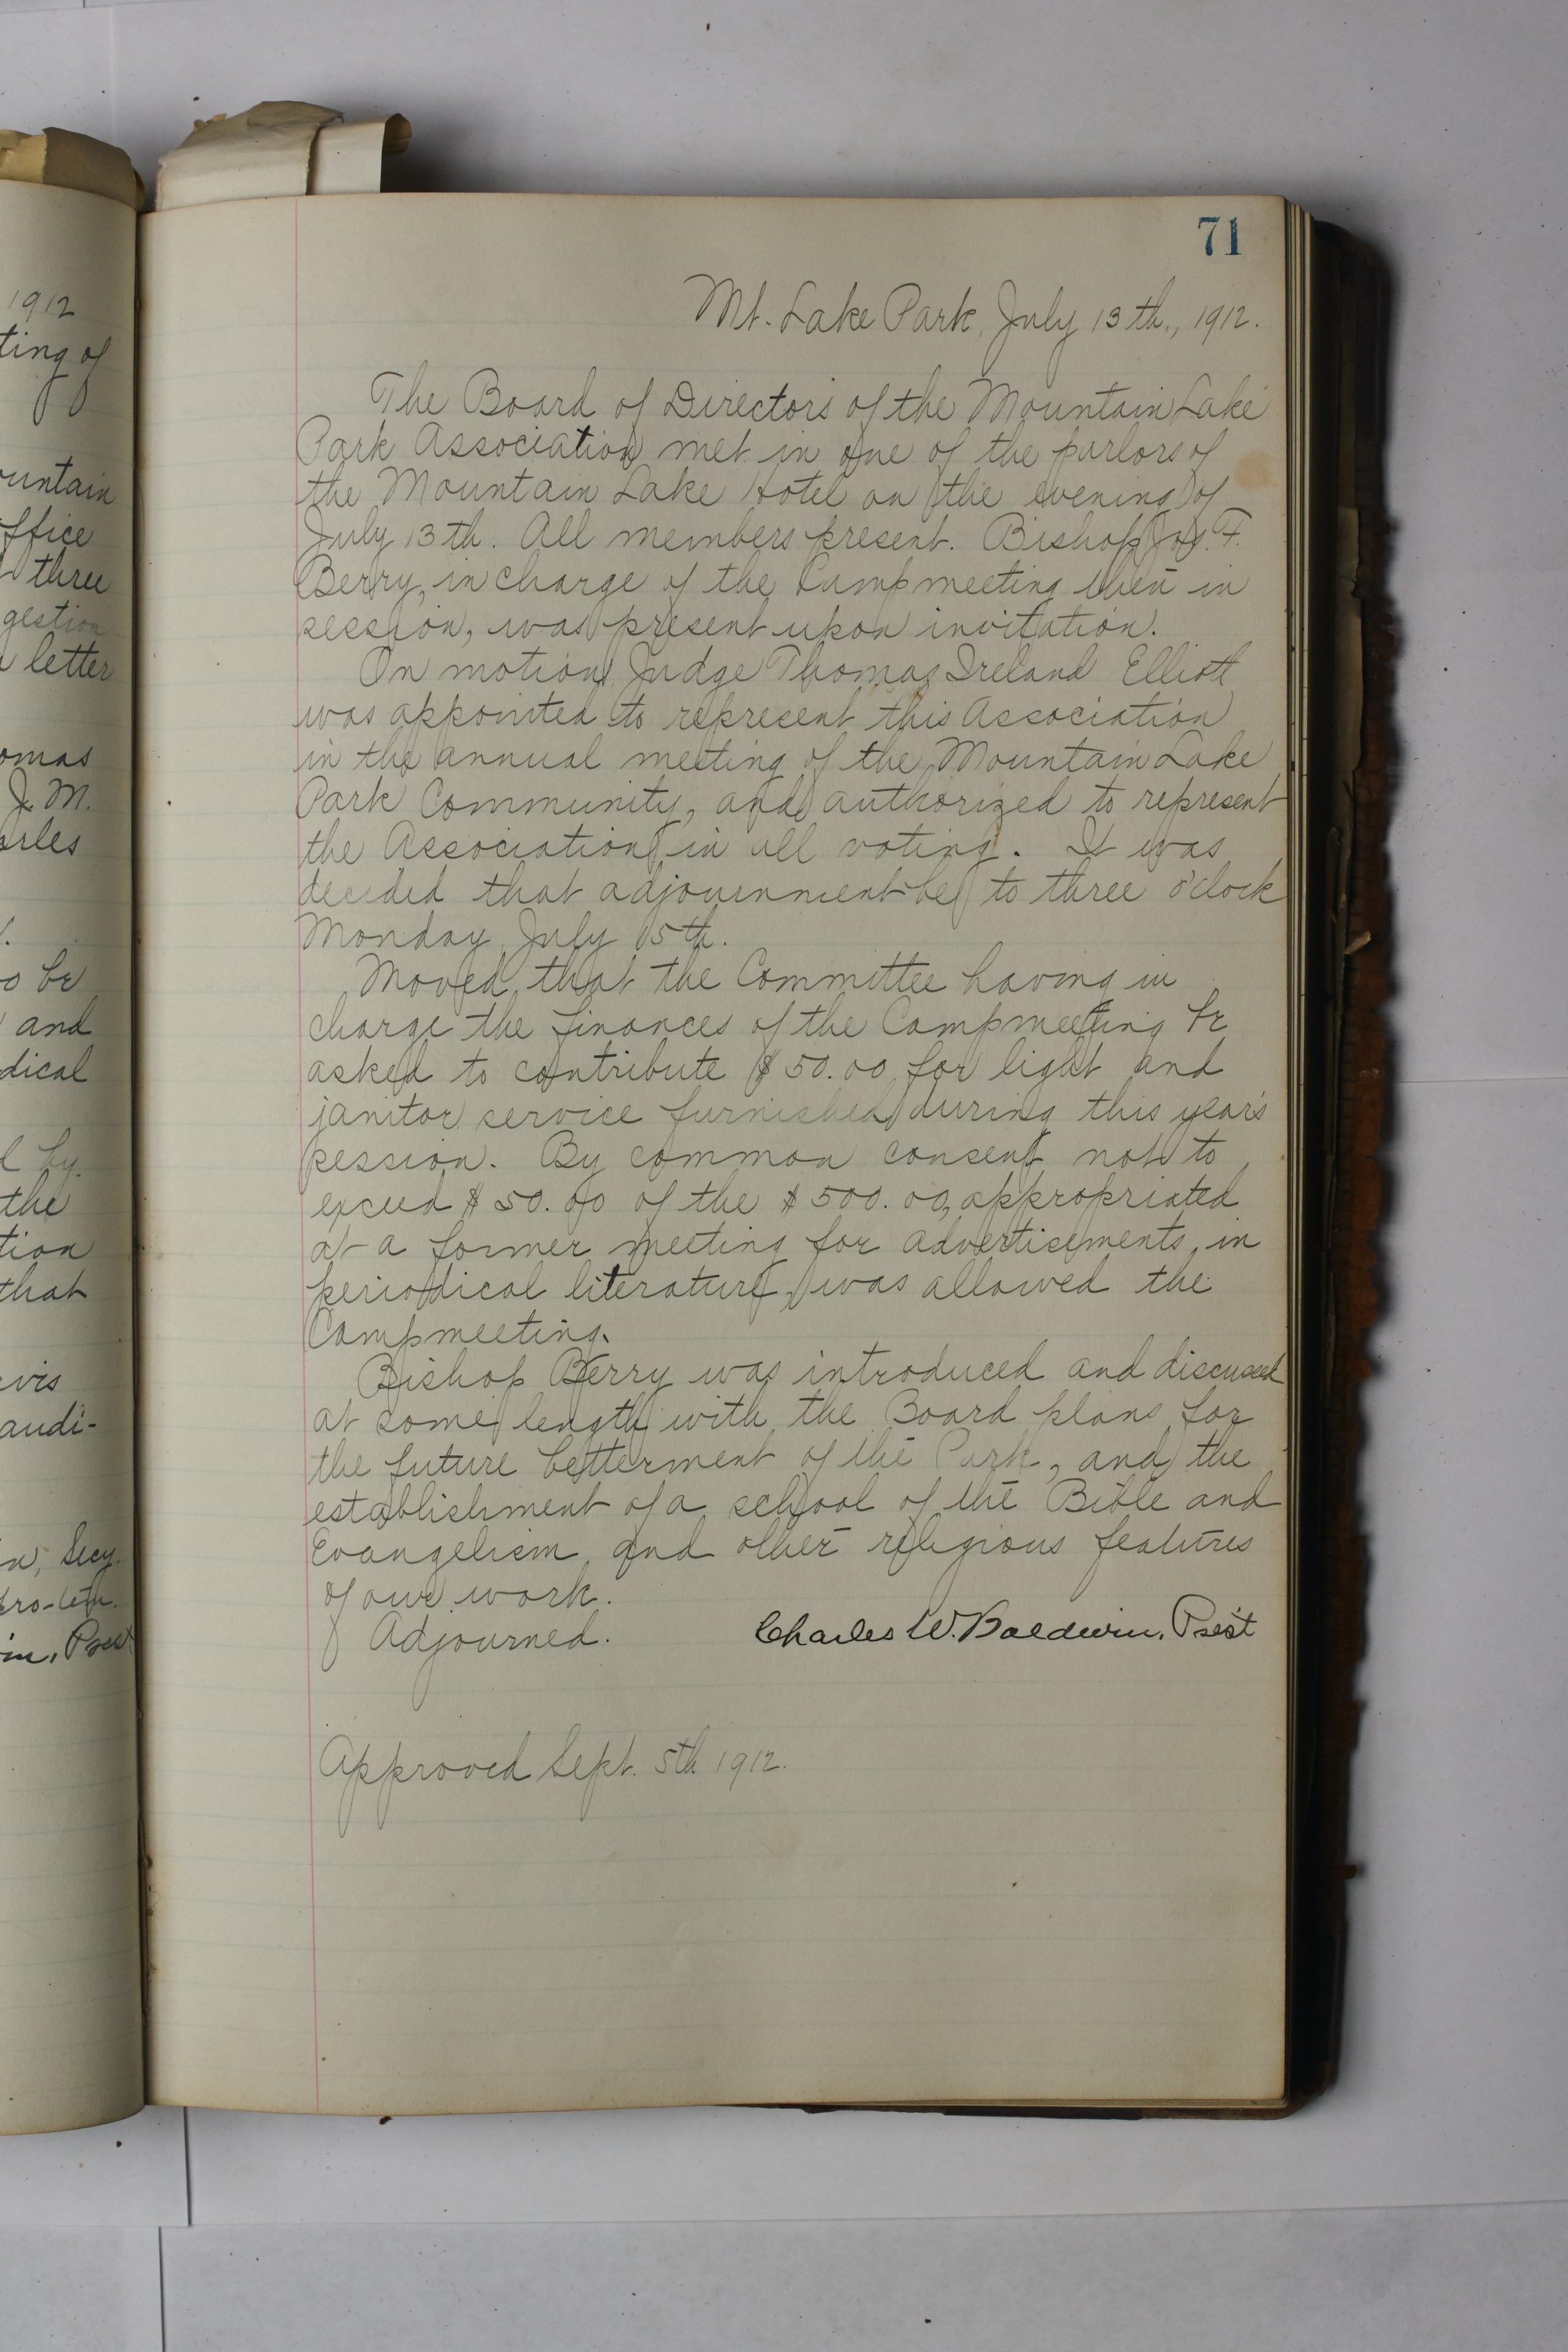 1912
ting of
ountain
ffice
three
gestion
letter
omas
J. M.
arles
be
and
dical
by
the
tion
that
vis
audi-
Secy.
pro-tem.
in, Prest
71
Mt. Lake Park, July 13th., 1912.
The Board of Directors of the Mountain Lake
Park Association met in one of the parlors of
the Mountain Lake Hotel on the evening of
July 13th. All members present. Bishop Jos. F.
Berry, in charge of the Campmeeting then in
session, was present upon invitation.
On motion Judge Thomas Ireland Elliott
was appointed to represent this Association
in the annual meeting of the Mountain Lake
Park Community, and authorized to represent
the Association in all voting. It was
decided that adjournment be to three o'clock
Monday July 15th.
Moved that the Committee having in
charge the finances of the Campmeeting be
asked to contribute $50.00 for light and
janitor service furnished during this year's
session. By common consent not to
exceed $50.00 of the $500.00, appropriated
at a former meeting for advertisements in
periodical literature, was allowed the
Campmeeting.
Bishop Berry was introduced and discussed
at some length with the Board plans for
the future betterment of the Park, and the
establishment of a school of the Bible and
Evangelism, and other religious features
of our work.
Adjourned. Charles W. Baldwin, Prest
Approved Sept. 5th 1912.